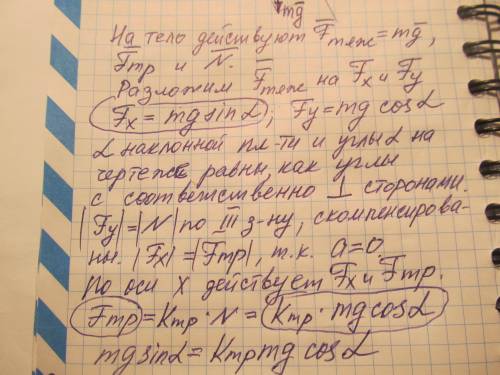 mg̅
На тело действуют F̅тяж = mg̅,
F̅тр и N̅. 
Разложим F̅тяж на Fx и Fy
Fx = mg sin α, Fy = mg cos α
α наклонной пл-ти и углы α на
чертеже равны, как углы
с соответственно ⊥ сторонами.
|Fy| = |N| по III з-ну, скомпенсирова-
ны. |Fx| = |Fтр|, т.к. a = 0.
По оси X действует Fx и Fтр.
Fтр = Kтр · N = Kтр · mg cos α
mg sin α = Kтр mg cos α